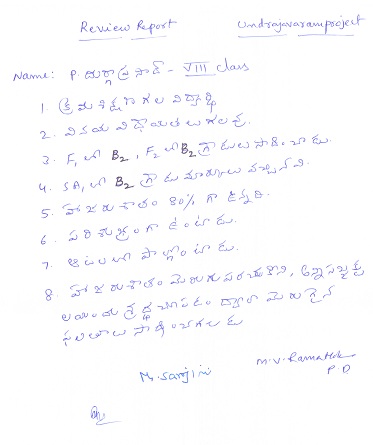 Review Report Undrajavaram project
Name: P. దుర్గా ప్రసాద్ - VIII class
1. క్రమశిక్షణ గల విద్యార్థి
2. వినయ విధేయతలు గలవు.
3. F1 లో B2, F2 లో B2 గ్రాడులు సాధించాడు.
4. SA1 లో B2 గ్రాడు మార్కులు వచ్చినవి.
5. హాజరు శాతం 80% గా ఉన్నది.
6. పరిశుభ్రంగా ఉంటాడు.
7. ఆటలలో పాల్గొంటాడు.
8. హాజరు శాతం మెరుగుపరచుకొని, అన్ని సబ్జెక్టు
లయందు శ్రద్ధ చూపడం ద్వారా మెరుగైన
ఫలితాలు సాధించగలడు
M. Sanjini
M.V. Ramatlok
P.D